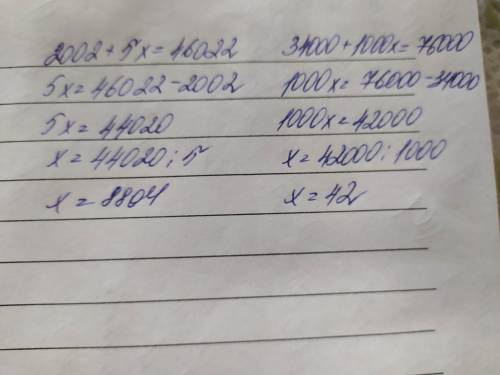 2002 + 5x = 46022
5x = 46022 - 2002
5x = 44020
x = 44020 : 5
x = 8804
34000 + 1000x = 76000
1000x = 76000 - 34000
1000x = 42000
x = 42000 : 1000
x = 42